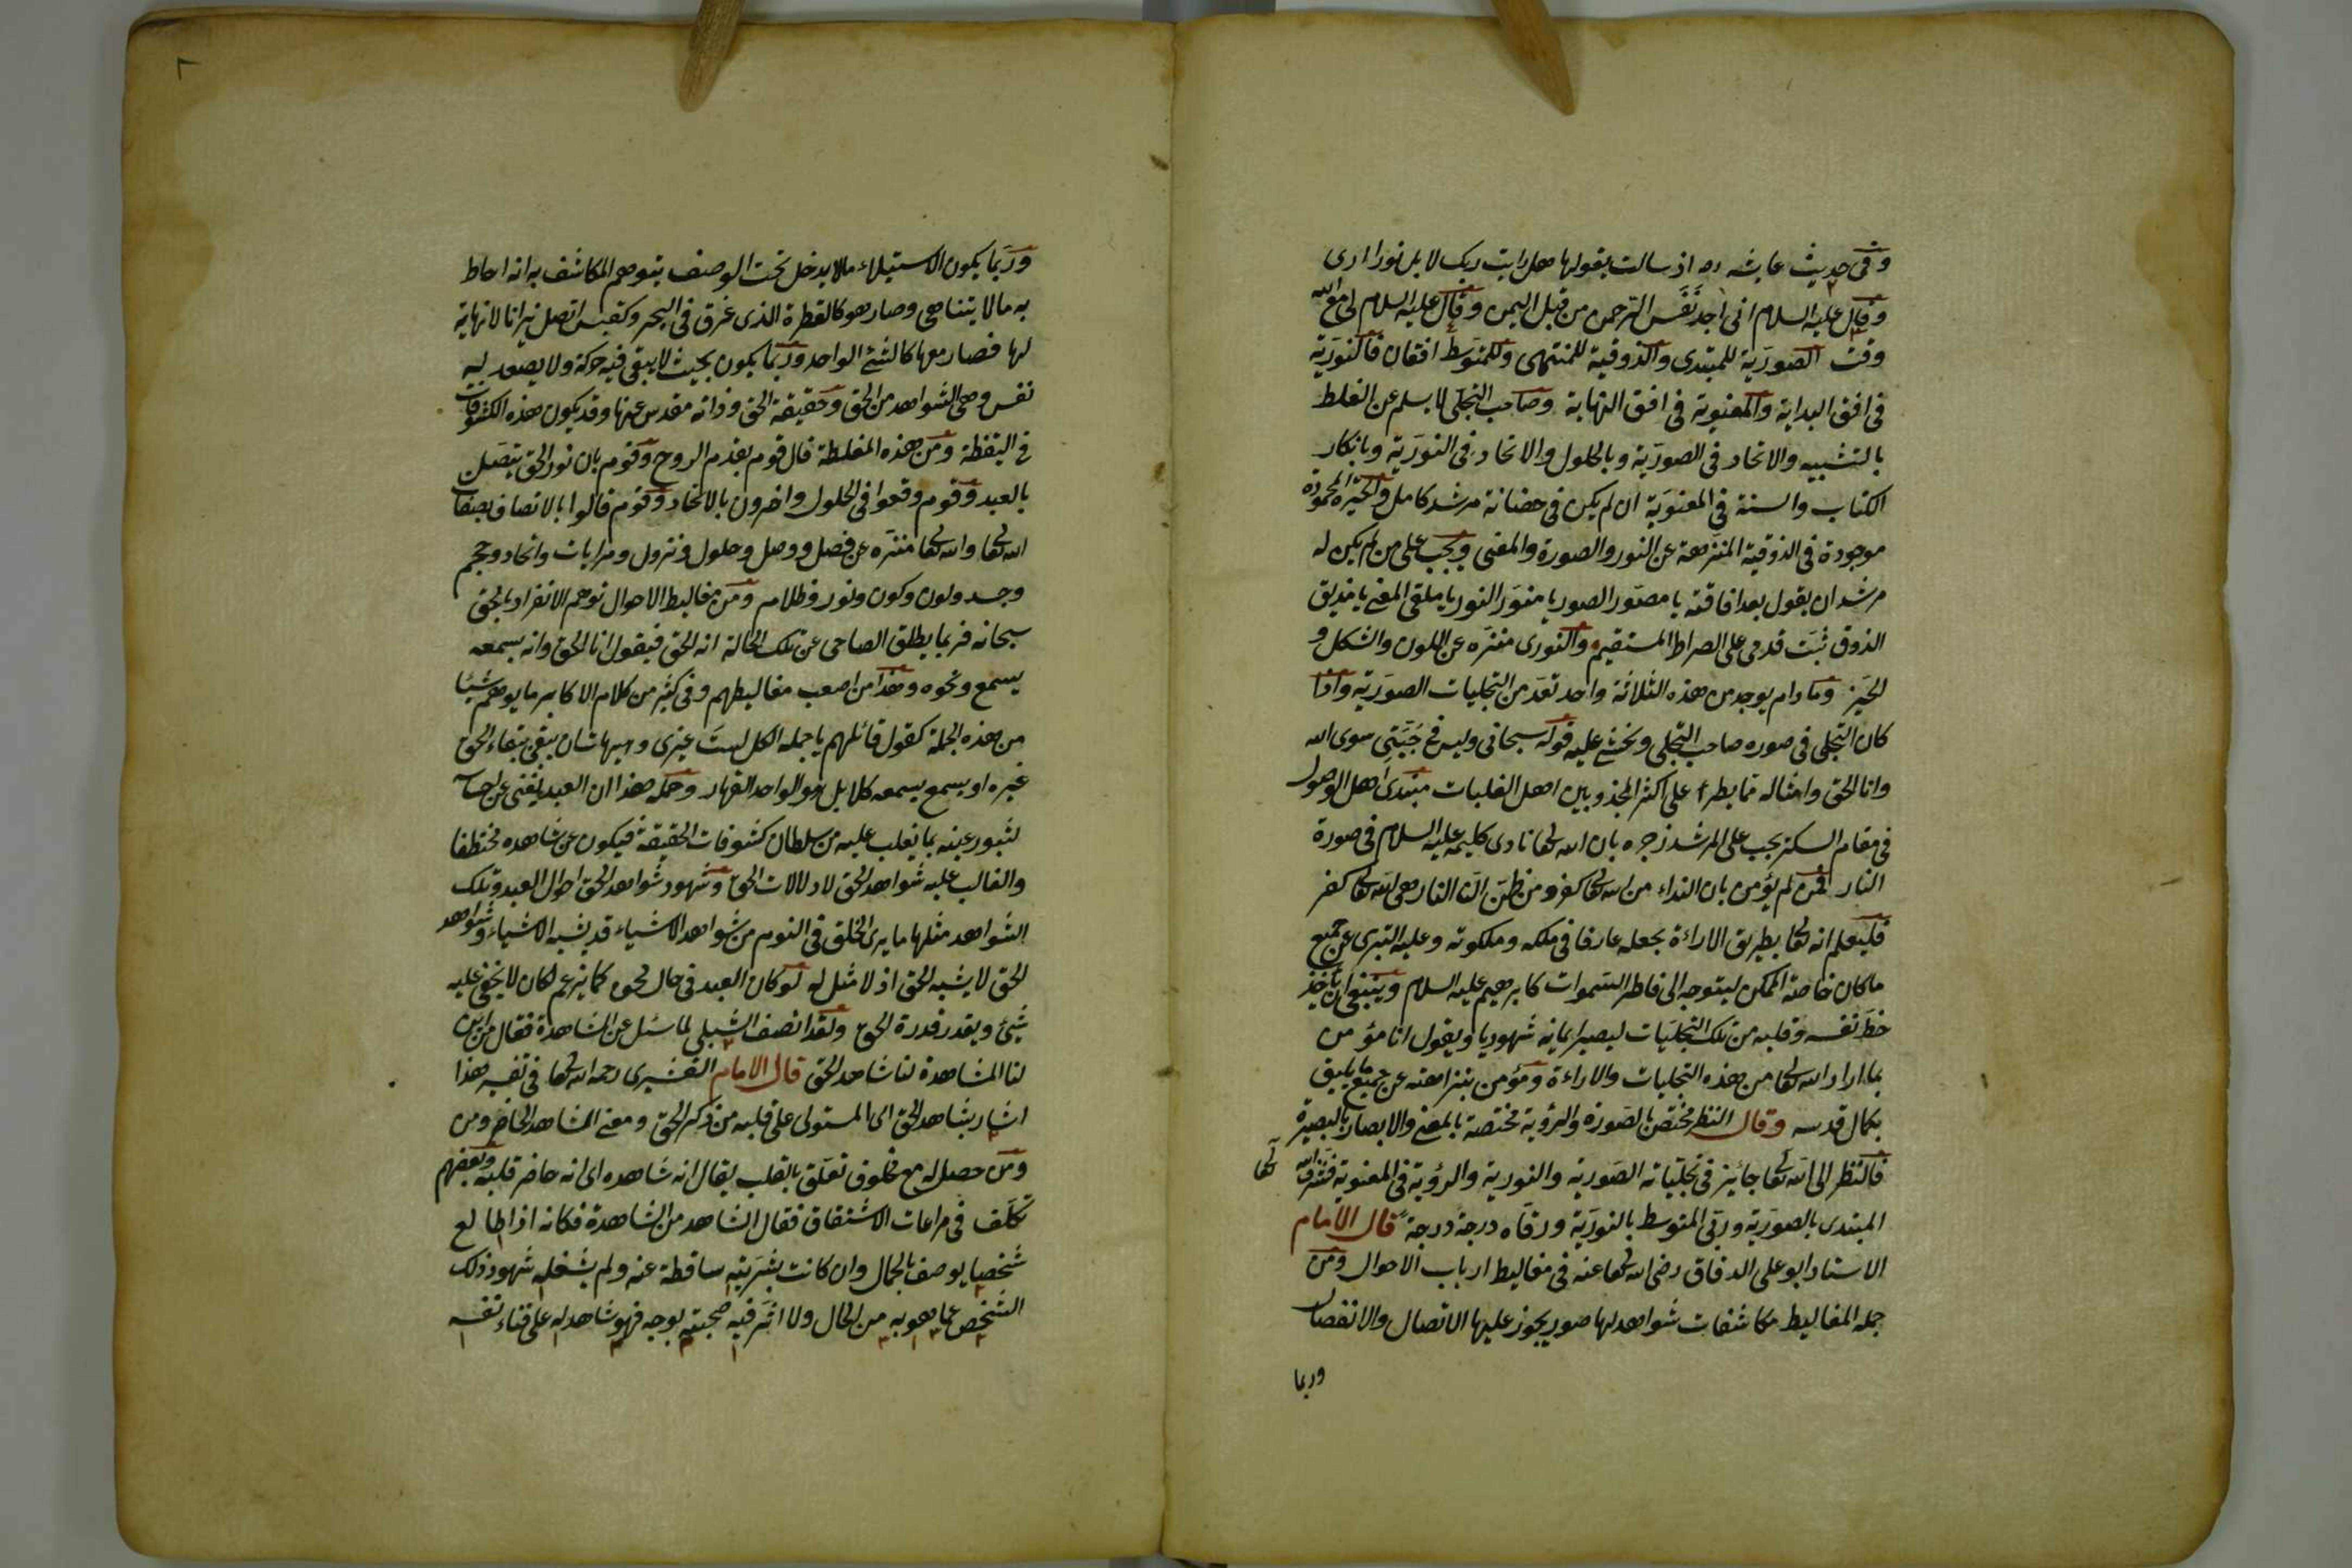 وفى حديث عايشه رض اذ سالت بقولها هل رايت ربك لا بل نورا ارى
وقال عليه السلام انى اجد نَفَس الرحمن من قبل اليمن وقال عليه السلام لى مع الله
وقت الصوريّة للمبتدى والذوقية للمنتهى وللمتوسّط افقان فالنوريّة
فى افق البداية والمعنوية فى افق النهاية وصاحب التجلّى لا يسلم عن الغلط
بالتشبيه والاتحاد فى الصوريّة وبالحلول والاتحاد فى النوريّة وبانكار
الكتاب والسنة فى المعنويّة ان لم يكن فى حضانة مرشد كامل والحيرة المحمودة
موجودة فى الذوقية المنزهة عن النور والصورة والمعنى ويجب على من لم يكن له
مرشد ان يقول بعد افاقته يا مصوّر الصور يا منوّر النور يا ملقى المعنى يا مذيق
الذوق ثبّت قدمى على الصراط المستقيم والنورى منزّه عن اللون والشكل و
الحيّز وما دام يوجد من هذه الثلاثة واحد تعدّ من التجليات الصوريّة واذا
كان التجلى فى صوره صاحب التجلى ويخشى عليه قوله سبحانى وليس فى جُبّتى سوى الله
وانا الحق وامثاله مما يطرء على اكثر المجذوبين اهل الغلبات مبتدى اهل الوصول
فى مقام السكر يجب على المرشد زجره بان الله تعا نادى كليمه عليه السلام فى صورة
النار فمن لم يؤمن بان النداء من الله تعا كفر ومن ظنّ انّ النار هى الله تعا كفر
فليعلم انه تعا بطريق الاراءة يجعله عارفا فى ملكه وملكوته وعليه التبرى عن جميع
ما كان خاصّة الممكن ليتوجه الى فاطر السموات كابرهيم عليه السلام وينبغى ان ياخذ
حظّ نفسه وقلبه من تلك التجليّات ليصير ايمانه شهوديا ويقول انا مؤمن
بما اراد الله تعا من هذه التجليات والاراءة ومؤمن بنزاهته عن جميع ما يليق
بكمال قدسه وقال النظر مختصّ بالصورة والرؤية مختصة بالمعنى والابصار بالبصيرة
فالنظر الى الله تعا جائز فى تجليّاته الصوريّة والنورية والرؤية فى المعنوية فشرف الله تعا
المبتدى بالصوريّة ورقى المتوسط بالنوريّة ورقّاه درجة درجة قال الامام
الاستاد ابو على الدقاق رضى الله تعا عنه فى مغاليط ارباب الاحوال ومن
جمله المغاليط مكاشفات شواهد لها صور يجوز عليها الاتصال والانفصال
وربما
وربّما يكون الاستيلاء مالا يدخل تحت الوصف يتوهم المكاشف به انه احاط
به مالا يتناهى وصار هو كالقطرة الذى غرق فى البحر وكقبس اتصل نيرانا لا نهاية
لها فصار معها كالشئ الواحد وربّما يكون بحيث لا يبقى فيه حركة ولا يصعد له
نفس وهى الشواهد من الحق وحقيقة الحق وذاته مقدس عنها وقد يكون هذه الكشوفات
فى اليقظة ومن هذه المغلطة قال قوم بقدم الروح وقوم بان نور الحق يتصل
بالعبد وقوم وقعوا فى الحلول واخرون بالاتحاد وقوم قالوا بالاتصاف بصفات
الله تعا والله تعا منزّه عن فصل ووصل وحلول ونزول ومرايات واتحاد وحجم
وجسد ولون وكون ونور وظلام ومن مغاليط الاحوال توهم الانفراد بالحق
سبحانه فربما يطلق الصاحى عن تلك الحالة انه الحق فيقول انا الحق وانه بسمعه
يسمع ونحوه وهذا من اصعب مغاليطهم وفى كثير من كلام الاكابر ما يوهم شيئا
من هذه الجملة كقول قائلهم يا جملة الكل لستَ غيرى وهيهات ان يبقى ببقاء الحق
غيره او يسمع بسمعه كلا بل هو الواحد القهار وجمله هذا ان العبد يفنى عن احساسه
لثبور عينه بما يغلب عليه من سلطان كشوفات الحقيقة فيكون عن شاهده مختطفا
والغالب عليه شواهد الحق لا دلالات الحق وشهود شواهد الحق احوال العبد وتلك
الشواهد مثلها ما يرى الخلق فى النوم من شواهد الاشياء قد يشبه الاشياء وشواهد
الحق لا يشبه الحق اذ لا مثل له لو كان العبد فى حال محوه كما يزعم لكان لا يخفى عليه
شئ ويقدر قدرة الحق ولقد انصف الشبلى لما سئل عن المشاهدة فقال من اين
لنا المشاهدة لنا شاهد الحق قال الامام القشيرى رحمه الله تعا فى تفسير هذا
اشار بشاهد الحق الى المستولى على قلبه من ذكر الحق ومعنى الشاهد الحاضر ومن
ومن حصل له مع مخلوق تعلّق بالقلب يقال انه شاهده اى انه حاضر قلبه وبعضهم
تكلّف فى مراعات الاشتقاق فقال الشاهد من الشاهدة فكانه اذا طالع
شخصا يوصف بالجمال وان كانت بشريّته ساقطة عنه ولم يشغله شهود ذلك
الشخص عما هو به من الحال ولا اثّر فيه صحبته بوجه فهو شاهد له على فناء نفسه